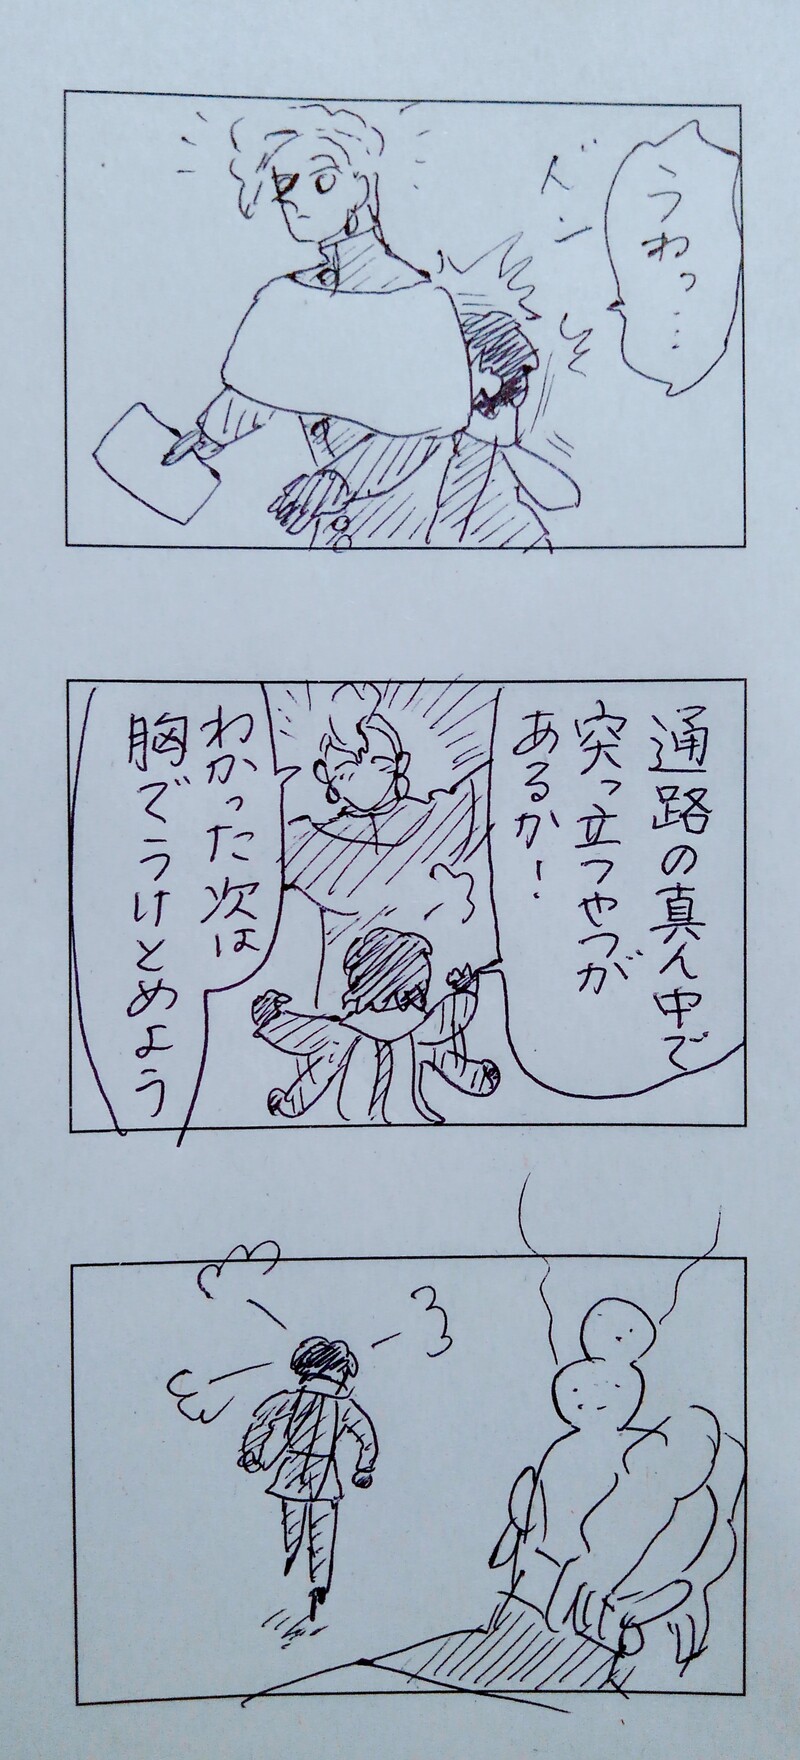 うわっ…
ドン
通路の真ん中で
突っ立つやつが
あるか!
わかった次は
胸でうけとめよう